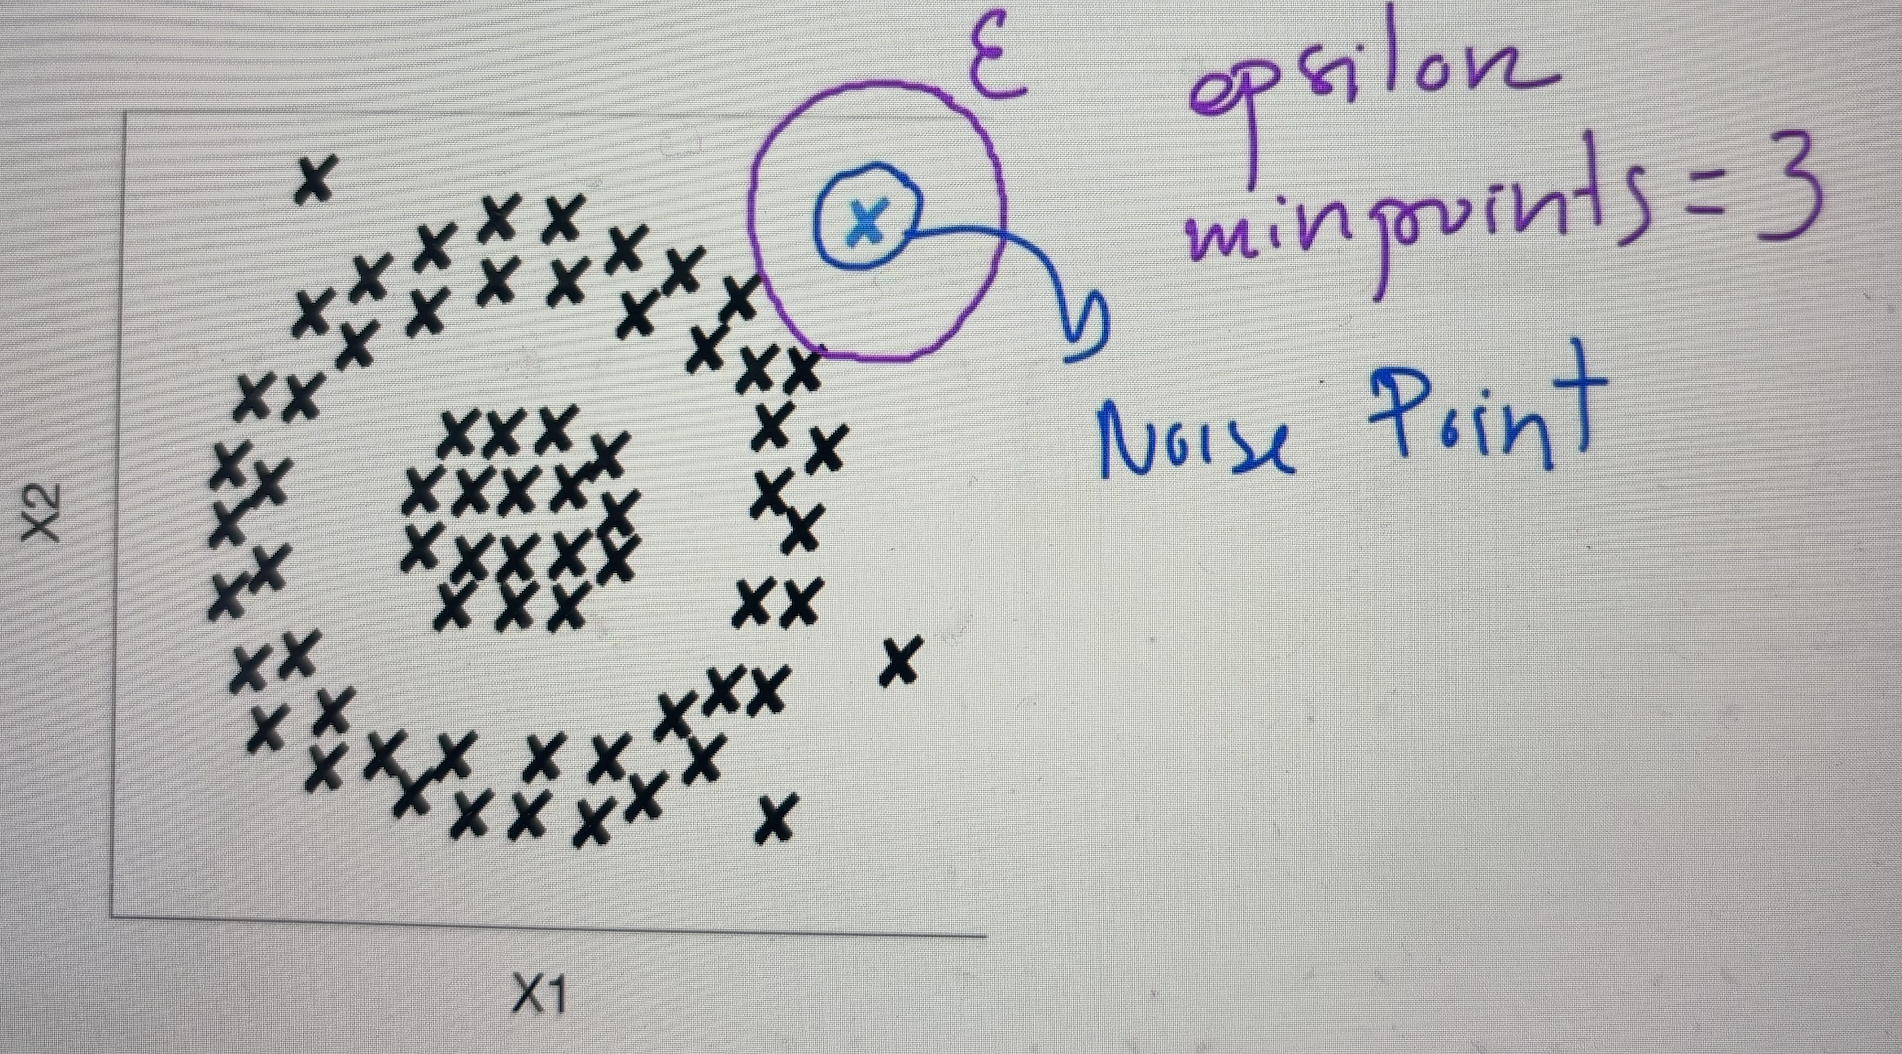 ε epsilon
minpoints = 3
Noise Point
X2
X1